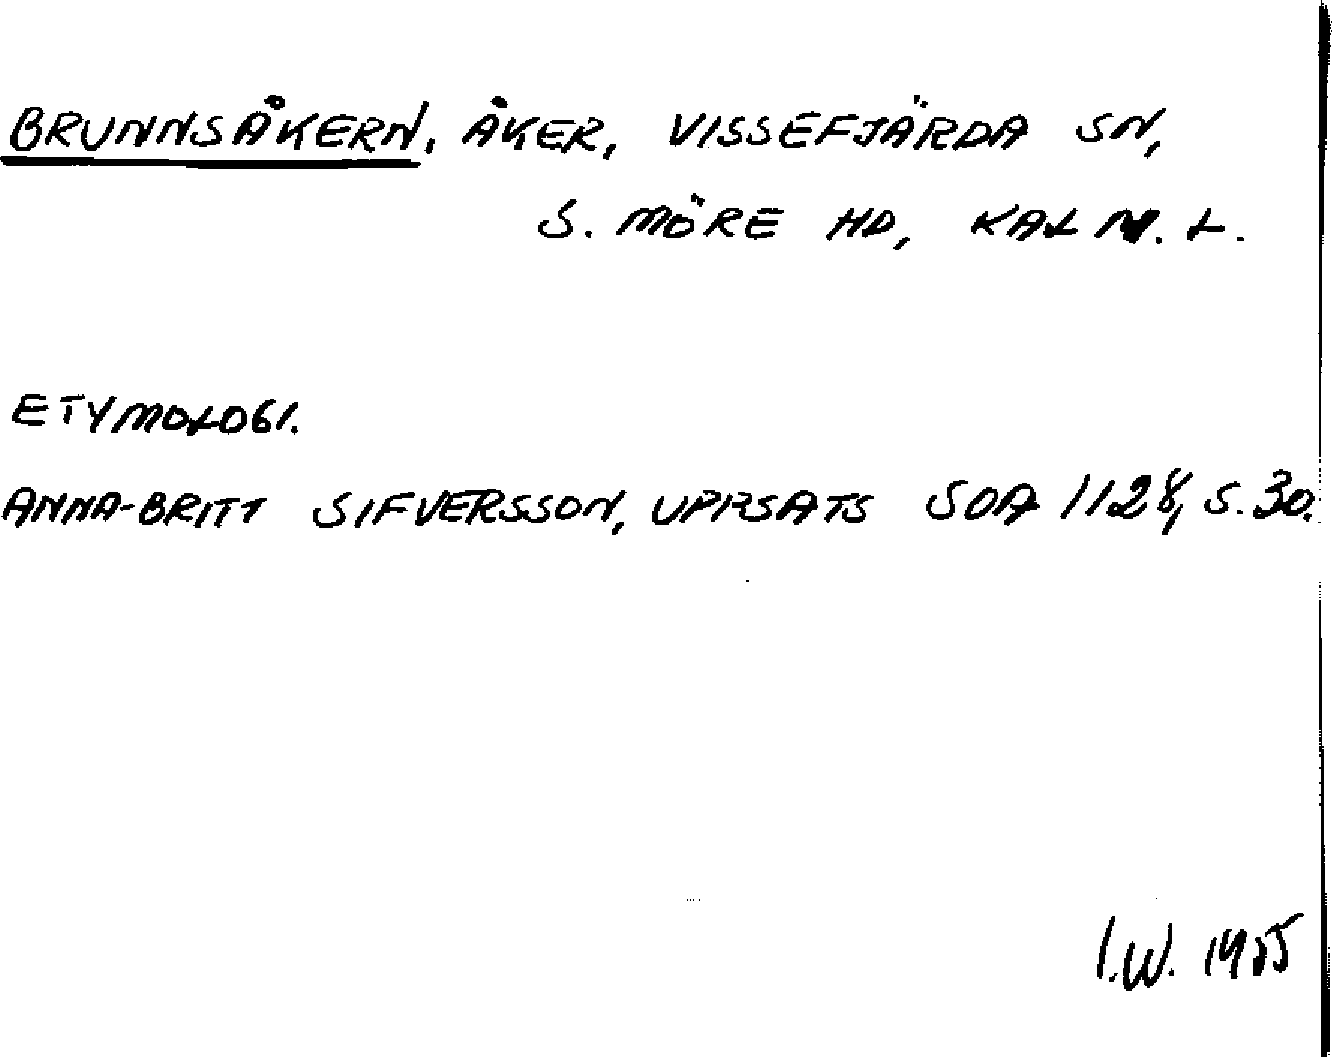 BRUNNSÅKERN, ÅKER, VISSEFJÄRDA SN,
S. MÖRE HD, KALM. L.
ETYMOLOGI.
ANNA-BRITT SIFVERSSON, UPPSATS SOA 1128, S. 30.
I.W.